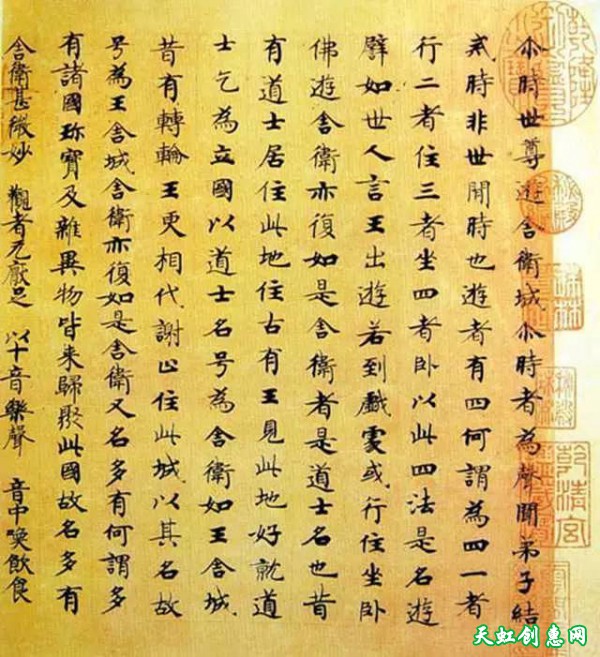 尒時世尊遊舎衛城尒時者為聲聞弟子結
戒時非世間時也遊者有四何謂為四一者
行二者住三者坐四者卧以此四法是名遊
譬如世人言王出遊若到戲處或行住坐卧
佛遊舎衛亦復如是舎衛者是道士名也昔
有道士居住此地住古有王見此地好就道
士乞為立國以道士名号為舎衛如王舎城
昔有轉輪王更相代謝止住此城以其名故
号為王舎城舎衛亦復如是舎衛又名多有何謂多
有諸國珎寶及雜異物皆来歸聚此國故名多有
舎衛甚微妙 觀者无厭足 以十音樂聲 音中喚飲食
乾清宮
天虹创惠网